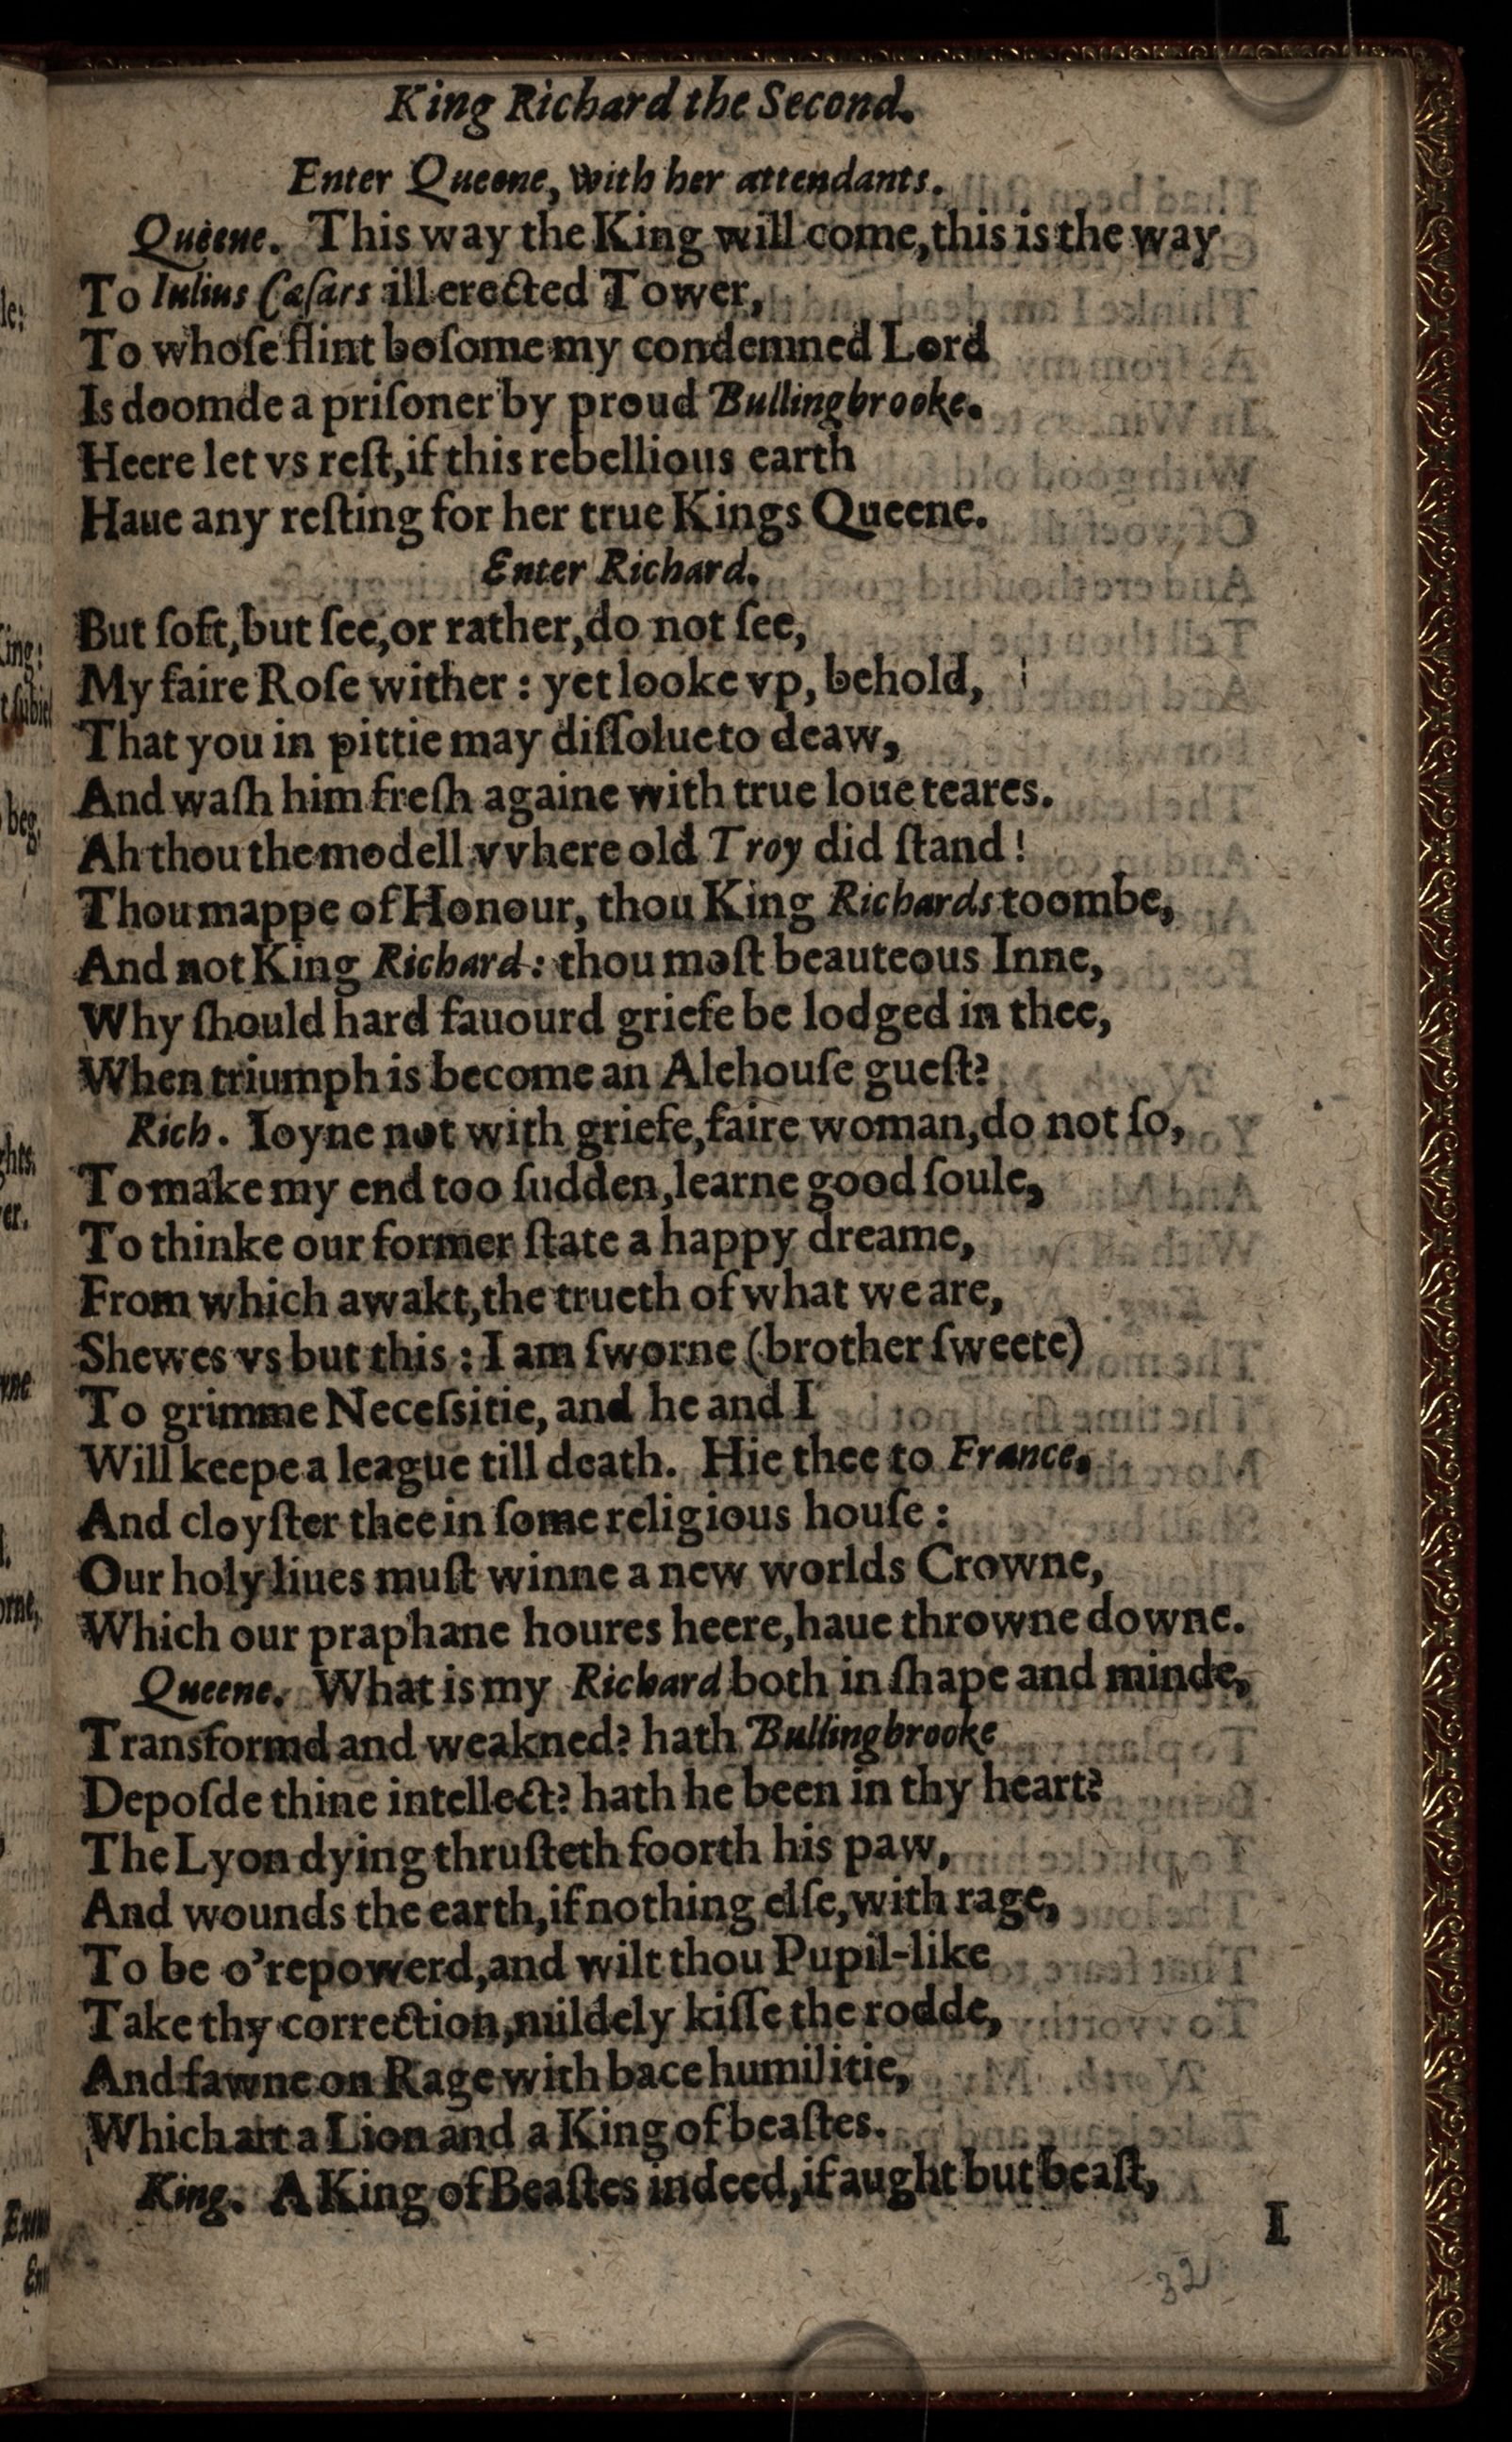 King Richard the Second.
Enter Queene, with her attendants.
Queene. This way the King will come, this is the way
To Iulius Cæſars ill erected Tower,
To whoſe flint boſome my condemned Lord
Is doomde a priſoner by proud Bullingbrooke.
Heere let vs reſt, if this rebellious earth
Haue any reſting for her true Kings Queene.
Enter Richard.
But ſoft, but ſee, or rather, do not ſee,
My faire Roſe wither : yet looke vp, behold,
That you in pittie may diſſolue to deaw,
And waſh him freſh againe with true loue teares.
Ah thou the modell vvhere old Troy did ſtand !
Thou mappe of Honour, thou King Richards toombe,
And not King Richard : thou moſt beauteous Inne,
Why ſhould hard fauourd griefe be lodged in thee,
When triumph is become an Alehouſe gueſt?
Rich. Ioyne not with griefe, faire woman, do not ſo,
To make my end too ſudden, learne good ſoule,
To thinke our former ſtate a happy dreame,
From which awakt, the trueth of what we are,
Shewes vs but this : I am ſworne (brother ſweete)
To grimme Neceſsitie, and he and I
Will keepe a league till death. Hie thee to France,
And cloyſter thee in ſome religious houſe :
Our holy liues muſt winne a new worlds Crowne,
Which our praphane houres heere, haue throwne downe.
Queene. What is my Richard both in ſhape and minde,
Transformd and weakned? hath Bullingbrooke
Depoſde thine intellect? hath he been in thy heart?
The Lyon dying thruſteth foorth his paw,
And wounds the earth, if nothing elſe, with rage,
To be o'repowerd, and wilt thou Pupil-like
Take thy correction, mildely kiſſe the rodde,
And fawne on Rage with bace humilitie,
Which art a Lion and a King of beaſtes.
King. A King of Beaſtes indeed, if aught but beaſt,
I
32